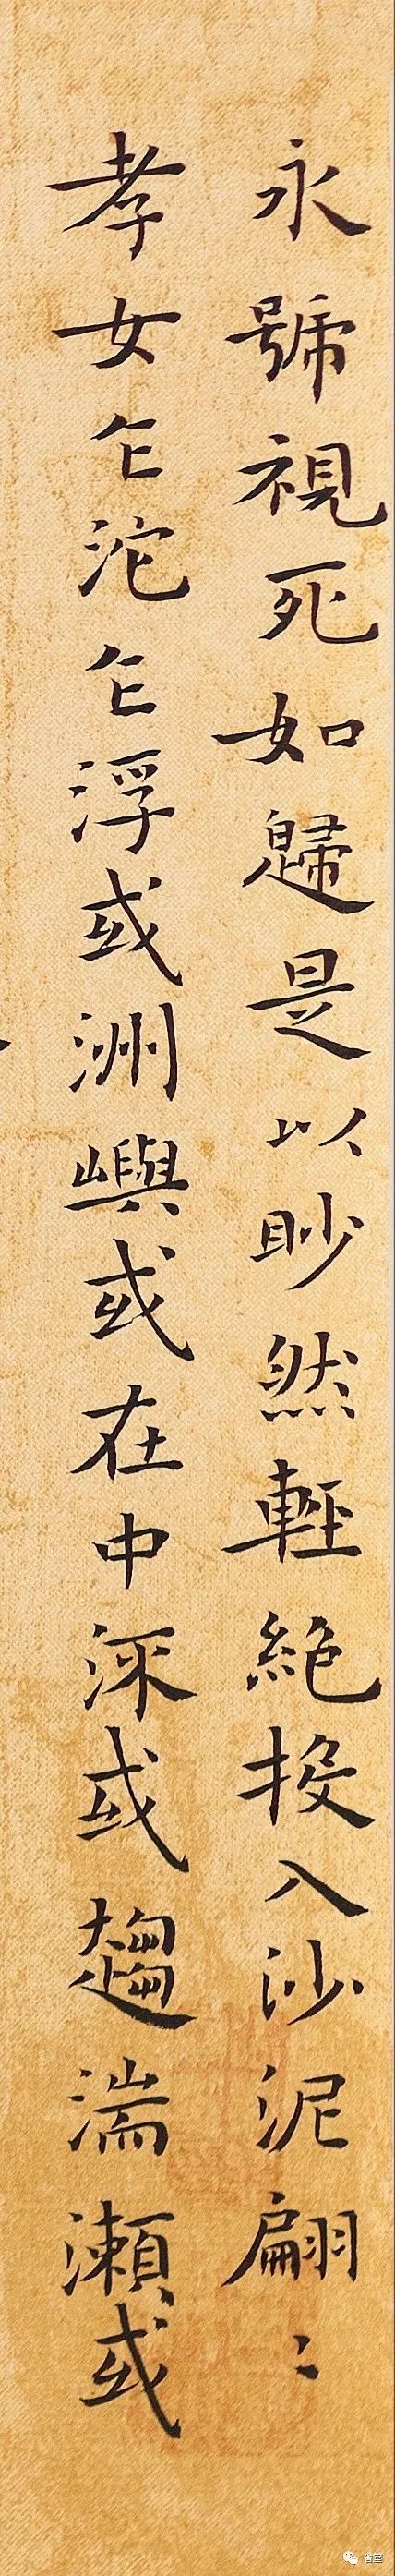 永號視死如歸是以眇然輕絕投入沙泥翩〻
孝女乍沱乍浮或洲嶼或在中流或趨湍瀨或